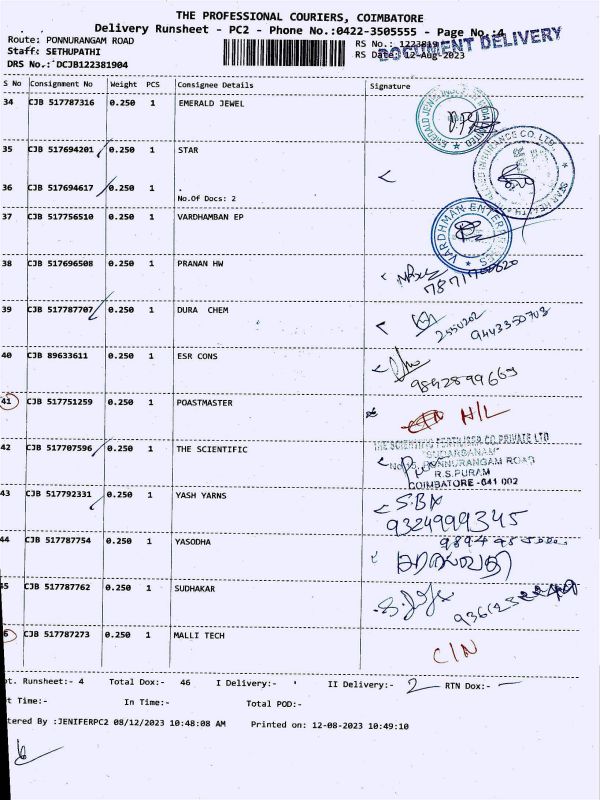 THE PROFESSIONAL COURIERS, COIMBATORE
Delivery Runsheet - PC2 - Phone No.:0422-3505555 - Page No.:4
Route: PONNURANGAM ROAD
RS No.:
DOCUMENT DELIVERY
Staff: SETHUPATHI
RS Date: 12-Aug-2023
DRS No.: DCJB122381904
S No Consignment No Weight PCS Consignee Details Signature
34 CJB 517787316 0.250 1 EMERALD JEWEL
35 CJB 517694201 0.250 1 STAR
36 CJB 517694617 0.250 1 .
No.Of Docs: 2
37 CJB 517756510 0.250 1 VARDHAMBAN EP
VARDHMAN ENTERPRISES
38 CJB 517696508 0.250 1 PRANAN HW
39 CJB 517787707 0.250 1 DURA CHEM
2550202
9443350703
40 CJB 89633611 0.250 1 ESR CONS
9892899669
41 CJB 517751259 0.250 1 POASTMASTER
H/L
42 CJB 517707596 0.250 1 THE SCIENTIFIC
THE SCIENTIFIC FERTILIZER CO PRIVATE LTD
"SUDARSANAM"
PONNURANGAM ROAD
R.S.PURAM
COIMBATORE -641 002
43 CJB 517792331 0.250 1 YASH YARNS
9324999345
44 CJB 517787754 0.250 1 YASODHA
45 CJB 517787762 0.250 1 SUDHAKAR
6 CJB 517787273 0.250 1 MALLI TECH
C/N
ot. Runsheet:- 4 Total Dox:- 46 I Delivery:- II Delivery:- 2 RTN Dox:- —
t Time:- In Time:- Total POD:-
tered By :JENIFERPC2 08/12/2023 10:48:08 AM Printed on: 12-08-2023 10:49:10